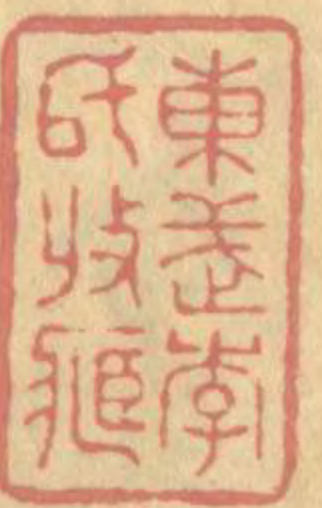 東武李
氏收藏